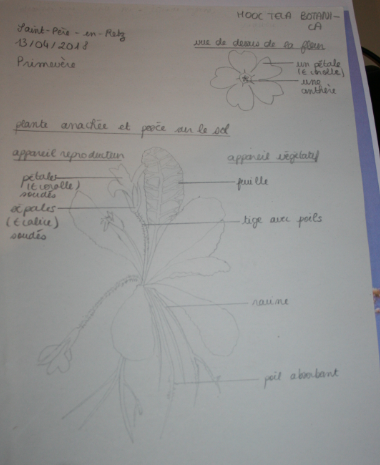 MOOC TELA BOTANI-
CA
Saint-Père-en-Retz
13/04/2018
Primevère
vue de dessus de la fleur
un pétale
(∈ corolle)
une
anthère
plante arrachée et posée sur le sol
appareil reproducteur
appareil végétatif
pétales
(∈ corolle)
soudés
sépales
(∈ calice)
soudés
feuille
tige avec poils
racine
poil absorbant